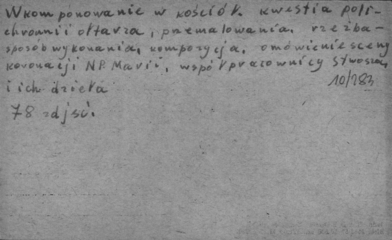 Wkomponowanie w kościół. kwestia poli-
chromii ołtarza, przemalowania, rzeźba-
sposób wykonania, kompozycja, omówienie sceny
koronacji NP Marii, współpracownicy Stwosza,
10/283
i ich dzieła
78 zdjęć.